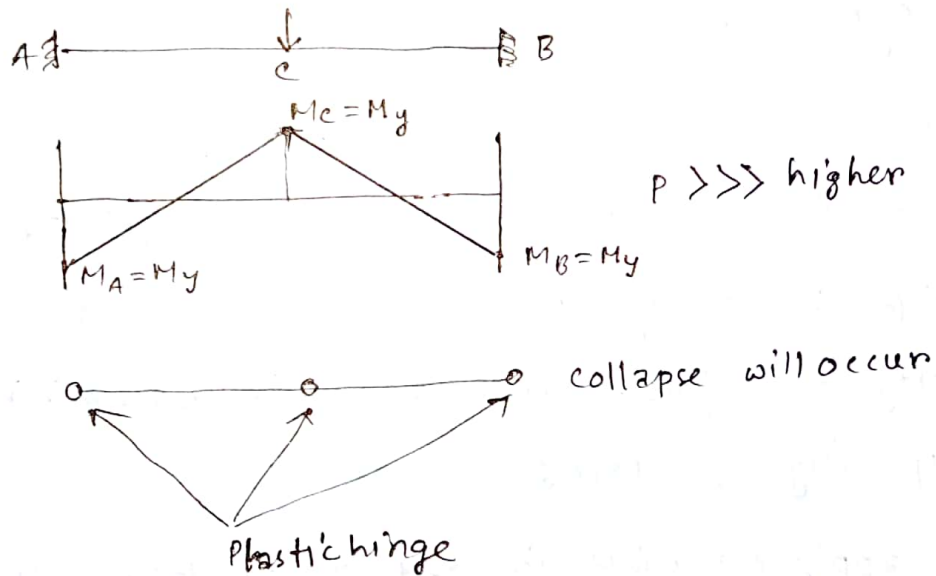 A B
C
Mc = My
P >>> higher
MA = My MB = My
collapse will occur
Plastic hinge